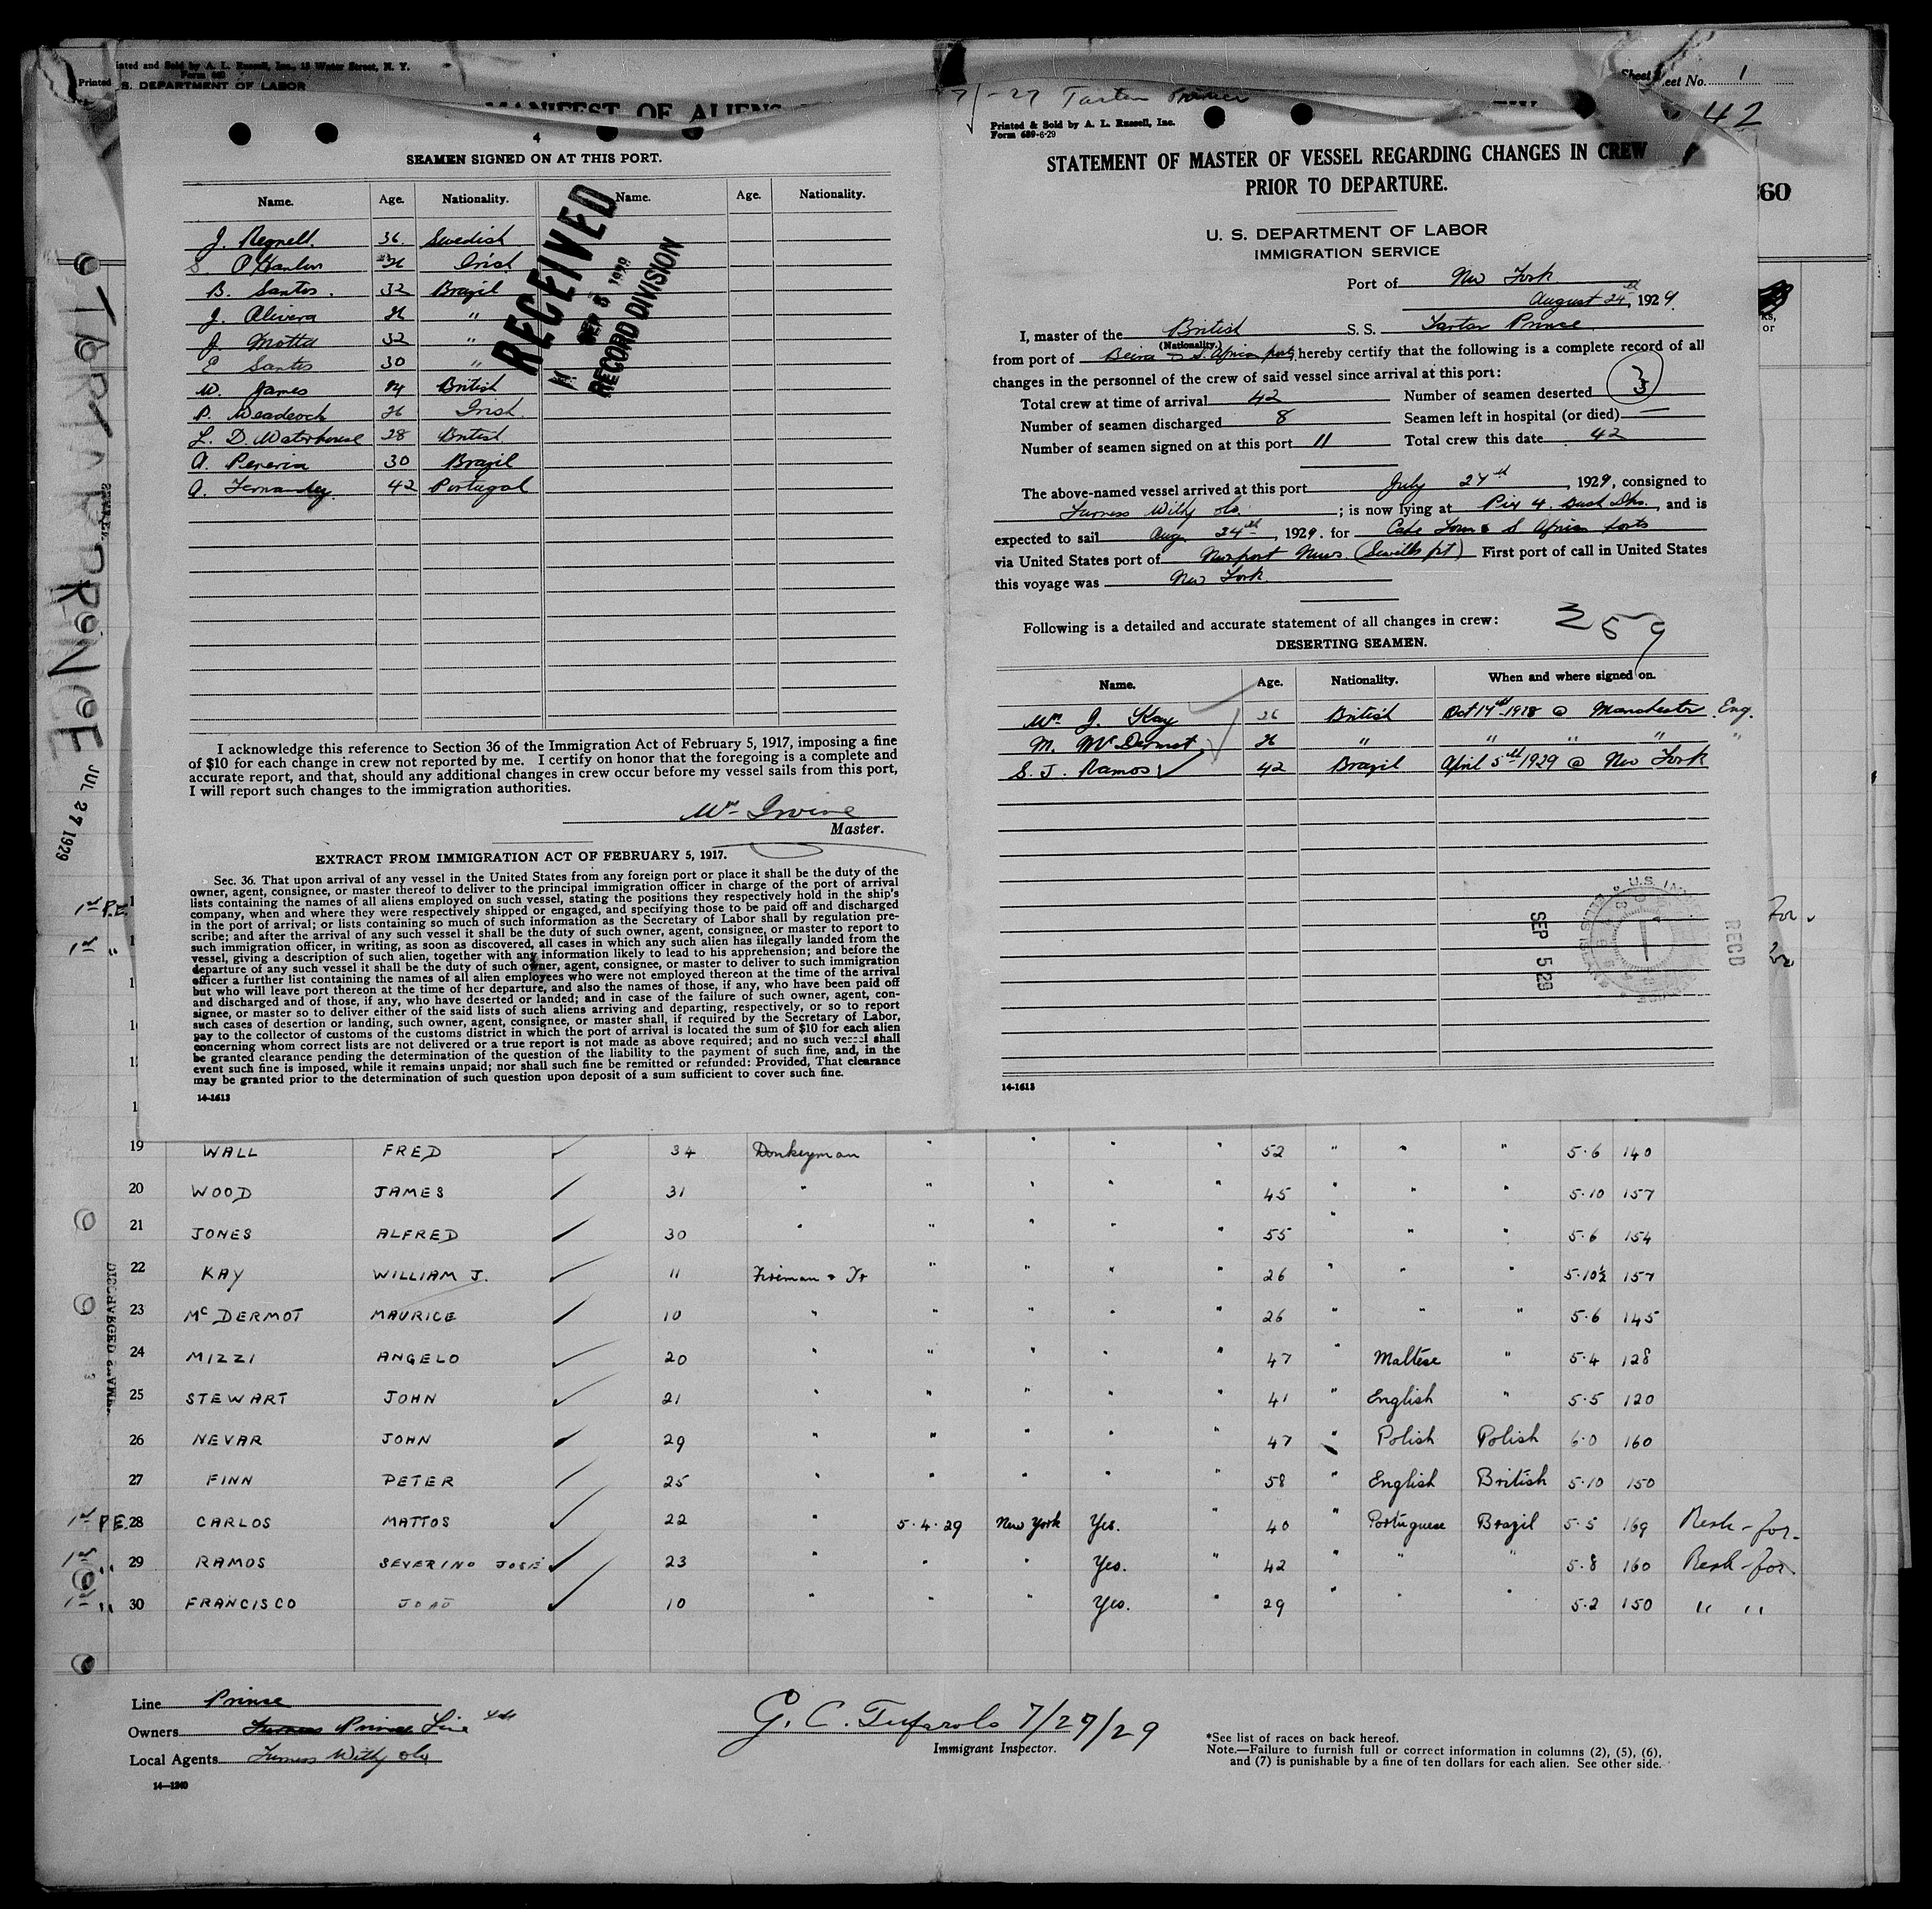 Printed and Sold by A. L. Russell, Inc., 15 Water Street, N. Y.
S. DEPARTMENT OF LABOR
MANIFEST OF ALIENS
Sheet No. 1
42
4
SEAMEN SIGNED ON AT THIS PORT.
Name. Age. Nationality. Name. Age. Nationality.
J. Regnell. 36. Swedish
S. O'Hanlon 26 Irish
B. Santos. 32 Brazil
J. Olivera 26 "
J. Motta 32 "
E Santos 30 "
W. James 24 British
P. Weadcock 26 Irish
L. D. Waterhouse 28 British
A. Pereria 30 Brazil
A. Fernandez. 42 Portugal
RECEIVED
SEP 5 1929
RECORD DIVISION
I acknowledge this reference to Section 36 of the Immigration Act of February 5, 1917, imposing a fine
of $10 for each change in crew not reported by me. I certify on honor that the foregoing is a complete and
accurate report, and that, should any additional changes in crew occur before my vessel sails from this port,
I will report such changes to the immigration authorities.
Wm Irvine
Master.
EXTRACT FROM IMMIGRATION ACT OF FEBRUARY 5, 1917.
Sec. 36. That upon arrival of any vessel in the United States from any foreign port or place it shall be the duty of the
owner, agent, consignee, or master thereof to deliver to the principal immigration officer in charge of the port of arrival
lists containing the names of all aliens employed on such vessel, stating the positions they respectively hold in the ship's
company, when and where they were respectively shipped or engaged, and specifying those to be paid off and discharged
in the port of arrival; or lists containing so much of such information as the Secretary of Labor shall by regulation pre-
scribe; and after the arrival of any such vessel it shall be the duty of such owner, agent, consignee, or master to report to
such immigration officer, in writing, as soon as discovered, all cases in which any such alien has illegally landed from the
vessel, giving a description of such alien, together with any information likely to lead to his apprehension; and before the
departure of any such vessel it shall be the duty of such owner, agent, consignee, or master to deliver to such immigration
officer a further list containing the names of all alien employees who were not employed thereon at the time of the arrival
but who will leave port thereon at the time of her departure, and also the names of those, if any, who have been paid off
and discharged and of those, if any, who have deserted or landed; and in case of the failure of such owner, agent, con-
signee, or master so to deliver either of the said lists of such aliens arriving and departing, respectively, or so to report
such cases of desertion or landing, such owner, agent, consignee, or master shall, if required by the Secretary of Labor,
pay to the collector of customs of the customs district in which the port of arrival is located the sum of $10 for each alien
concerning whom correct lists are not delivered or a true report is not made as above required; and no such vessel shall
be granted clearance pending the determination of the question of the liability to the payment of such fine, and, in the
event such fine is imposed, while it remains unpaid; nor shall such fine be remitted or refunded: Provided, That clearance
may be granted prior to the determination of such question upon deposit of a sum sufficient to cover such fine.
14-1613
7/-27 Tartar Prince
Printed & Sold by A. L. Russell, Inc.
Form 689-6-29
STATEMENT OF MASTER OF VESSEL REGARDING CHANGES IN CREW
PRIOR TO DEPARTURE.
U. S. DEPARTMENT OF LABOR
IMMIGRATION SERVICE
Port of New York
August 24th, 1929.
I, master of the British S. S. Tartar Prince
(Nationality.)
from port of Beira & S. African ports, hereby certify that the following is a complete record of all
changes in the personnel of the crew of said vessel since arrival at this port:
Total crew at time of arrival 42 Number of seamen deserted 3
Number of seamen discharged 8 Seamen left in hospital (or died) —
Number of seamen signed on at this port 11 Total crew this date 42
The above-named vessel arrived at this port July 27th, 1929, consigned to
Furness Withy Co; is now lying at Pier 4. Bush Dks., and is
expected to sail Aug 24th, 1929. for Cape Town & S African ports
via United States port of Newport News (Sewells pt) First port of call in United States
this voyage was New York
Following is a detailed and accurate statement of all changes in crew:
359
DESERTING SEAMEN.
Name. Age. Nationality. When and where signed on.
Wm J. Kay 26 British Oct 17th 1928 @ Manchester Eng.
M. McDermot 26 " " " " "
S. J. Ramos 42 Brazil April 5th 1929 @ New York
SEP 5 29
RECD
14-1613
360
TARTAR PRINCE
JUL 27 1929
1st P.E.
1st "
For.
19 WALL FRED 34 Donkeyman " " " " 52 " " " 5·6 140
20 WOOD JAMES 31 " " " " " 45 " " " 5·10 157
21 JONES ALFRED 30 " " " " " 55 " " " 5·6 154
22 KAY WILLIAM J. 11 Fireman & Tr " " " " 26 " " " 5·10½ 157
23 McDERMOT MAURICE 10 " " " " " 26 " " " 5·6 145
24 MIZZI ANGELO 20 " " " " " 47 " Maltese " 5·4 128
25 STEWART JOHN 21 " " " " " 41 " English " 5·5 120
26 NEVAR JOHN 29 " " " " " 47 " Polish Polish 6·0 160
27 FINN PETER 25 " " " " " 58 " English British 5·10 150
1st P.E. 28 CARLOS MATTOS 22 " 5·4·29 New York Yes. " 40 " Portuguese Brazil 5·5 169
1st " 29 RAMOS SEVERINO JOSÉ 23 " " " Yes. " 42 " " " 5·8 160
1st " 30 FRANCISCO JOAO 10 " " " Yes. " 29 " " " 5·2 150 " "
Line Prince
Owners Furness Prince Line Ltd
Local Agents Furness Withy Co
14—1240
7/27/29
Immigrant Inspector.
*See list of races on back hereof.
Note.—Failure to furnish full or correct information in columns (2), (5), (6),
and (7) is punishable by a fine of ten dollars for each alien. See other side.